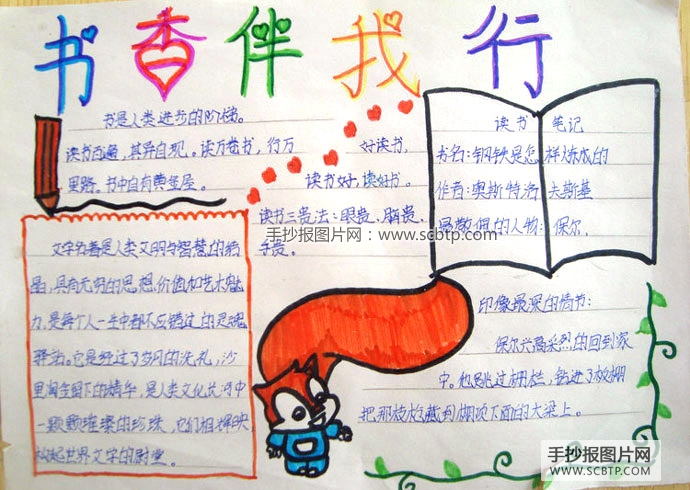 书香伴我行
书是人类进步的阶梯。
读书百遍,其异自现。读万卷书,行万
里路。书中自有黄金屋。
好读书,
读书好,读好书。
读书三贵法:眼贵、脑贵、
手贵。
文学名著是人类文明与智慧的结
晶,具有无穷的思想价值和艺术魅
力,是每个人一生中都不应错过的灵魂
驿站。它是经过了岁月的洗礼,沙
里淘金留下的精华,是人类文化长河中
一颗颗璀璨的珍珠,它们相辉映
构起世界文学的殿堂。
读书 笔记
书名:钢铁是怎样炼成的
作者:奥斯特洛夫斯基
最敬佩的人物:保尔.
印象最深的情节:
保尔兴高采烈的回到家
中。他跳过栅栏,钻进了板棚
把那枝枪藏到棚顶下面的大梁上。
手抄报图片网:www.scbtp.com
手抄报图片网
WWW.SCBTP.COM